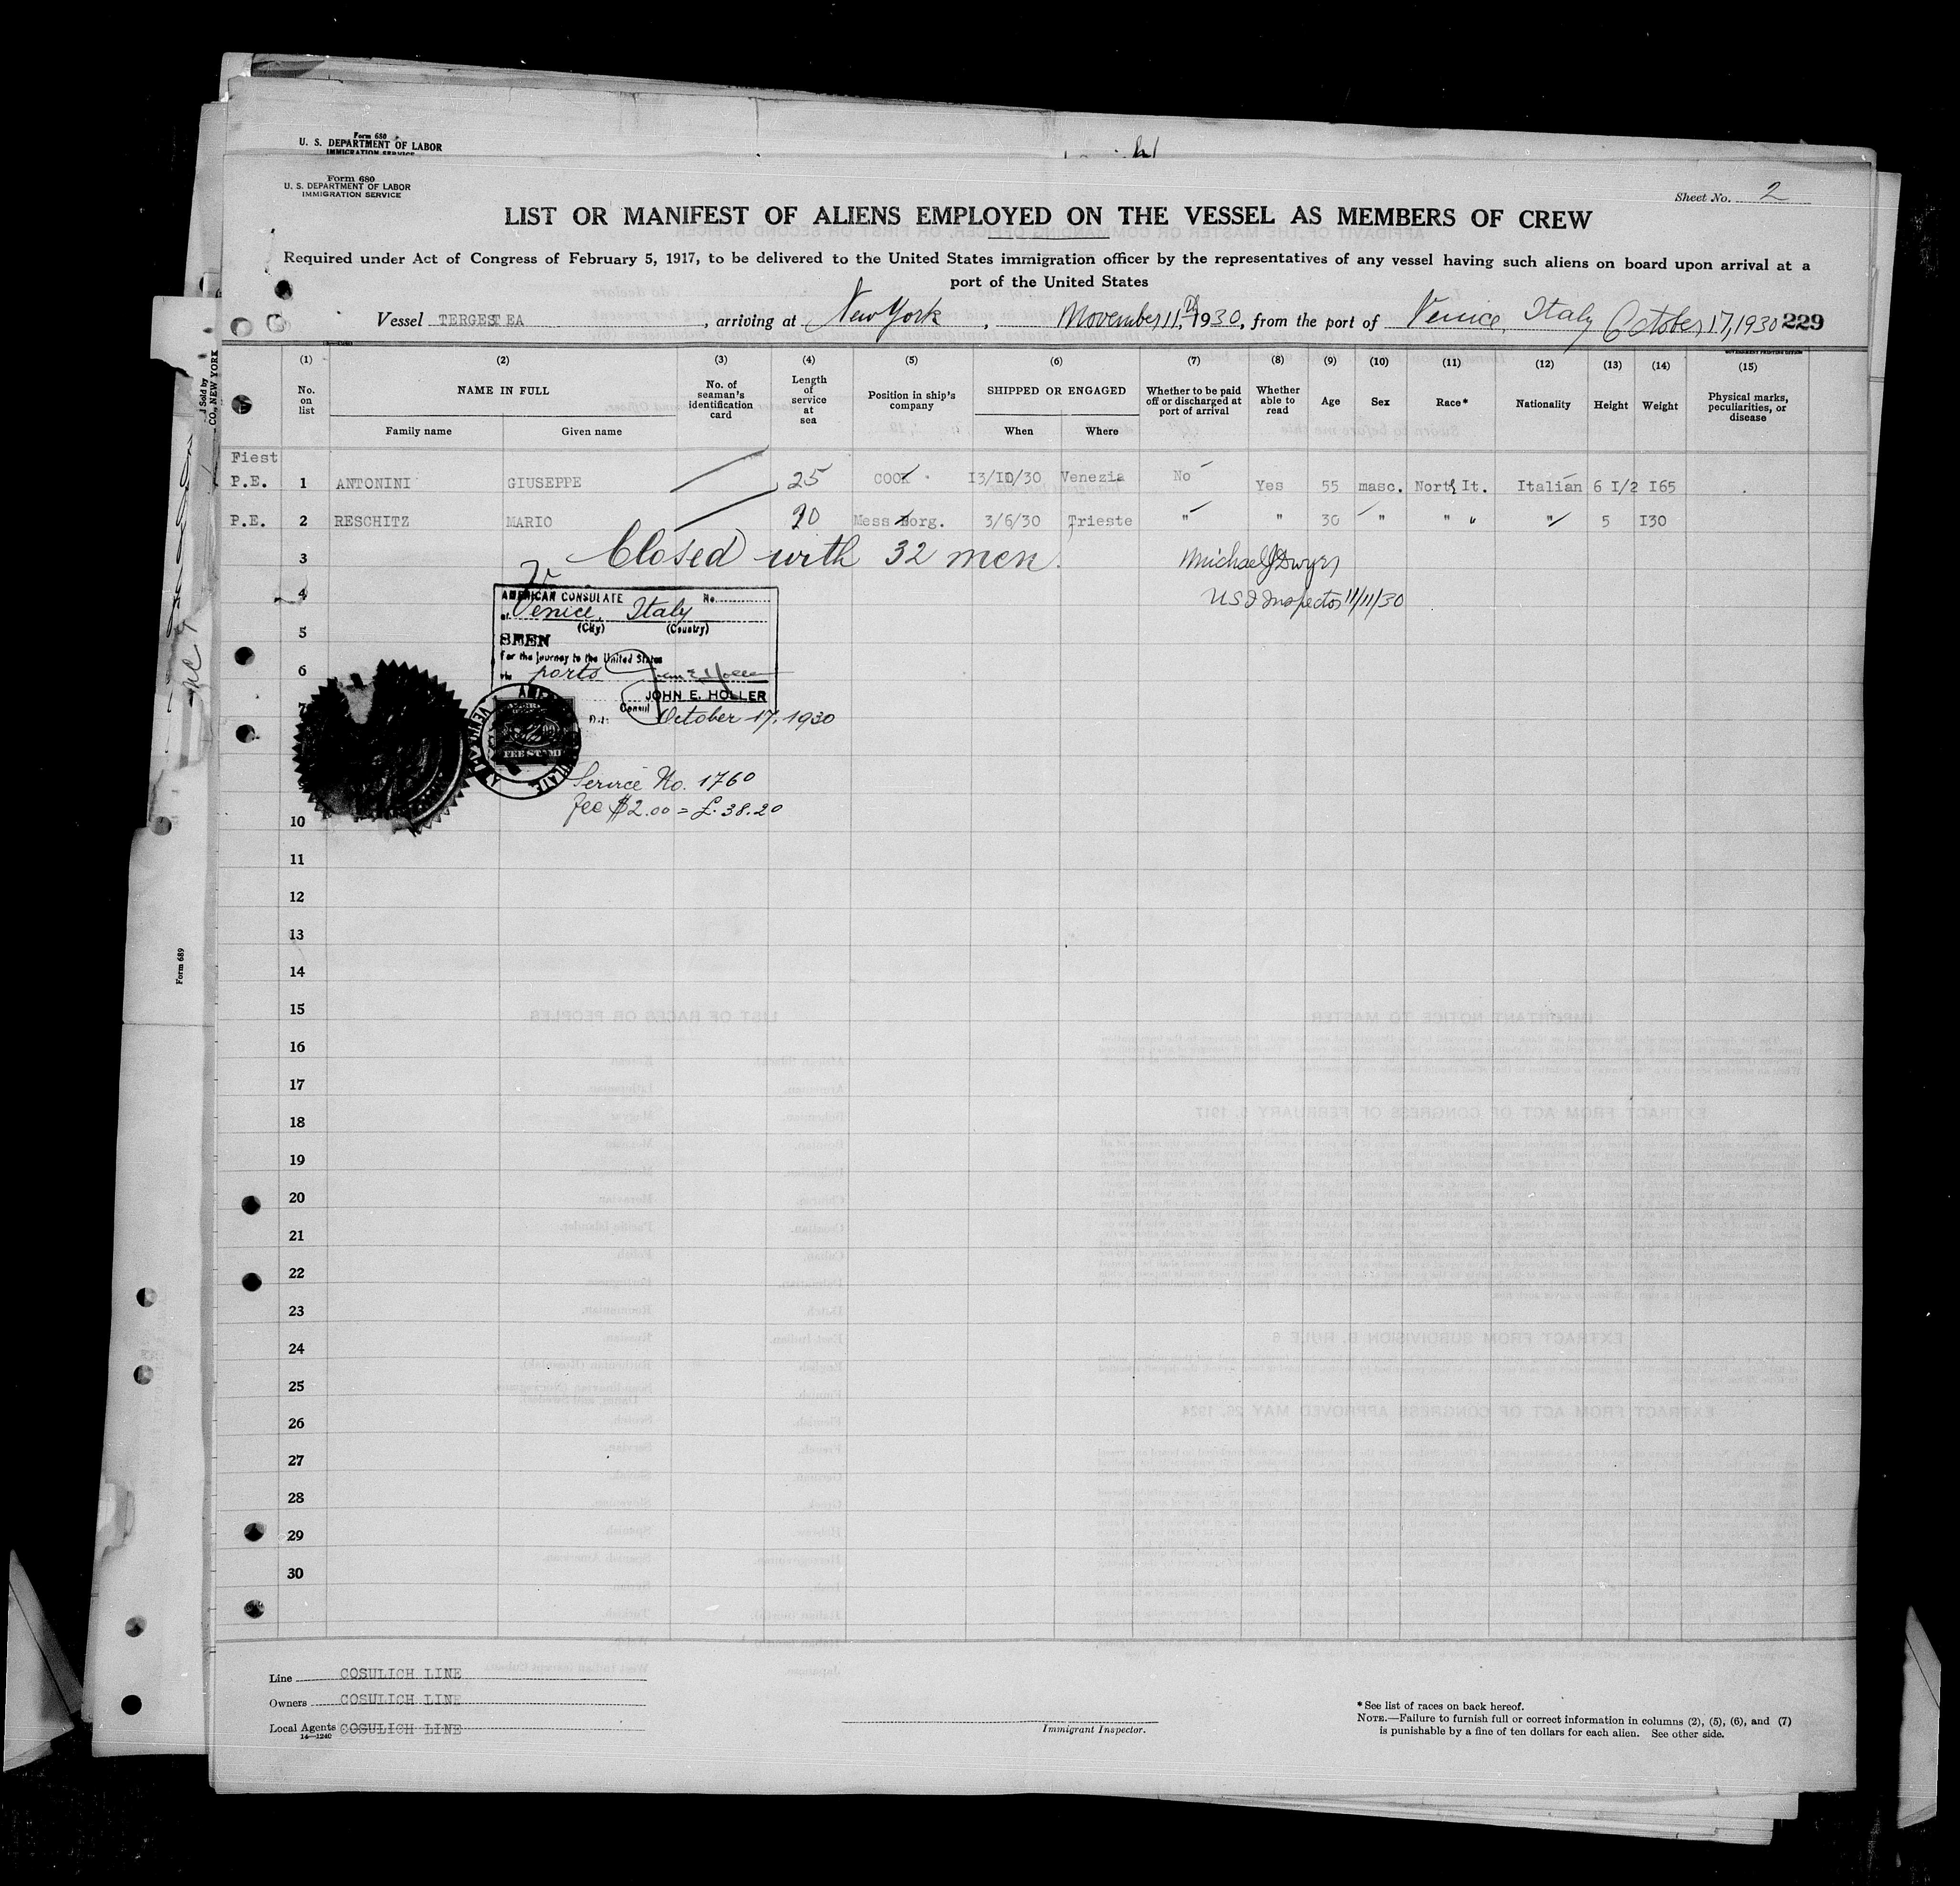 Form 680
U. S. DEPARTMENT OF LABOR
IMMIGRATION SERVICE
Form 680
U. S. DEPARTMENT OF LABOR
IMMIGRATION SERVICE
Sheet No. 2
LIST OR MANIFEST OF ALIENS EMPLOYED ON THE VESSEL AS MEMBERS OF CREW
Required under Act of Congress of February 5, 1917, to be delivered to the United States immigration officer by the representatives of any vessel having such aliens on board upon arrival at a
port of the United States
Vessel TERGESTEA, arriving at New York, November 11th, 1930, from the port of Venice, Italy October 17, 1930 229
(1) (2) (3) (4) (5) (6) (7) (8) (9) (10) (11) (12) (13) (14) (15)
No. on list
NAME IN FULL
Family name Given name
No. of seaman's identification card
Length of service at sea
Position in ship's company
SHIPPED OR ENGAGED
When Where
Whether to be paid off or discharged at port of arrival
Whether able to read
Age
Sex
Race*
Nationality
Height
Weight
Physical marks, peculiarities, or disease
Fiest
P.E. 1 ANTONINI GIUSEPPE 25 COOK I3/IO/30 Venezia No Yes 55 masc. North It. Italian 6 I/2 I65
P.E. 2 RESCHITZ MARIO 20 Mess Borg. 3/6/30 Trieste " " 30 " " " " 5 I30
3 Closed with 32 men. Michael J Dwyer
4 U S I Inspector 11/11/30
AMERICAN CONSULATE No.
at Venice, Italy
(City) (Country)
5
SEEN
For the journey to the United States
6
the ports
JOHN E. HOLLER
Consul
7
Date October 17, 1930
FEE STAMP
Service No. 1760
fee $2.00 = £. 38.20
10
11
12
13
14
15
16
17
18
19
20
21
22
23
24
25
26
27
28
29
30
Line COSULICH LINE
Owners COSULICH LINE
Local Agents COSULICH LINE
14—1240
Immigrant Inspector.
*See list of races on back hereof.
NOTE.—Failure to furnish full or correct information in columns (2), (5), (6), and (7)
is punishable by a fine of ten dollars for each alien. See other side.
Sold by
CO., NEW YORK
Form 689